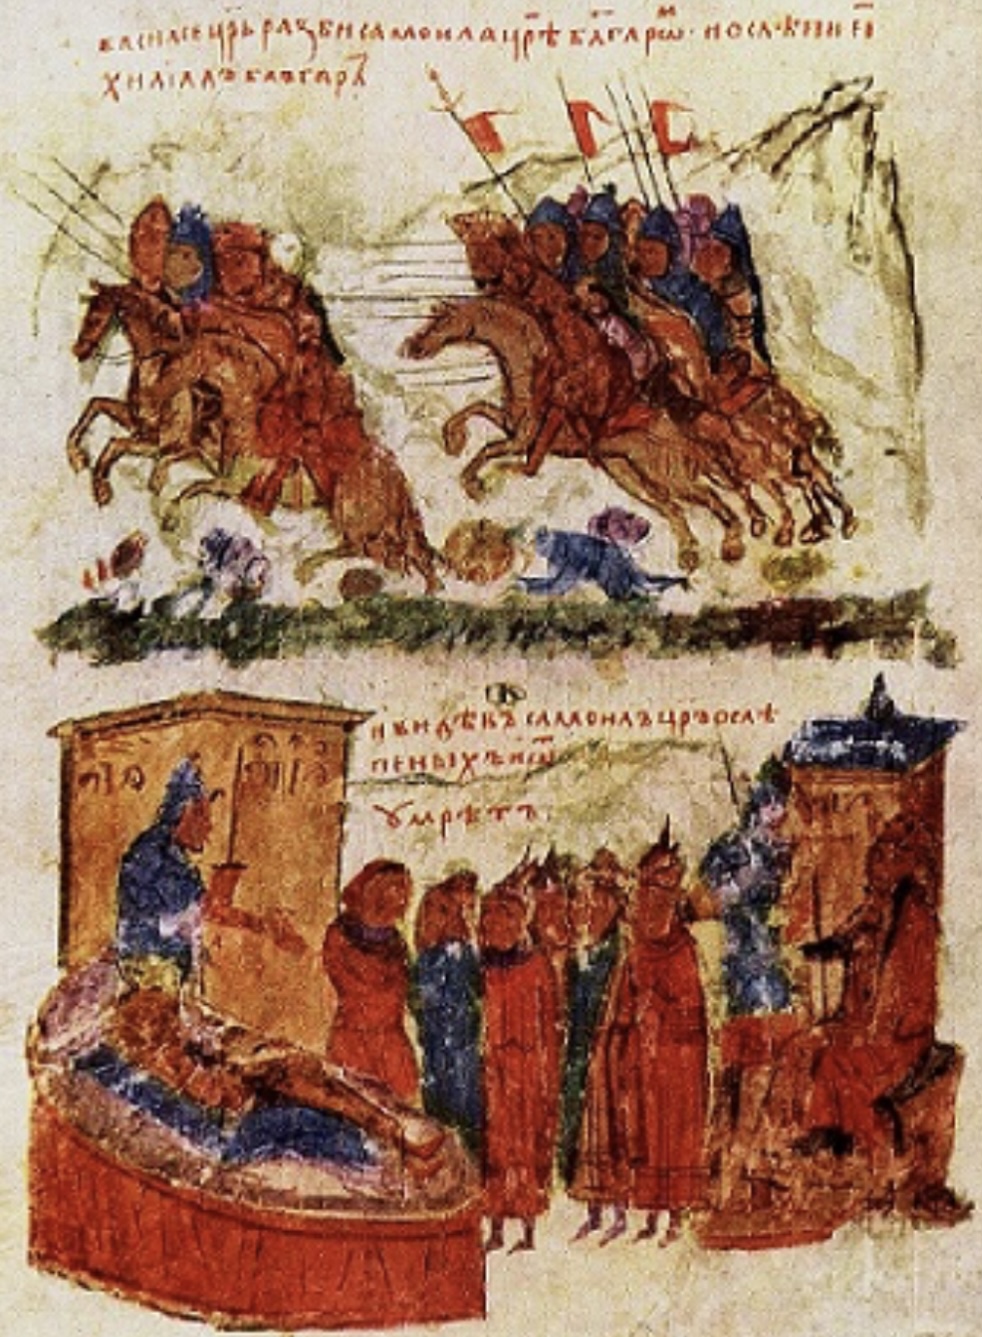 василїе цр҃ь разби самоила цр҃ѣ блъгарѡⷨ · и ослѣпи еі҃
хилїадъ блъгарь
и видѣвъ самоилъ цр҃ъ ослѣ
пеныхъ
ꙋмрѣтъ.